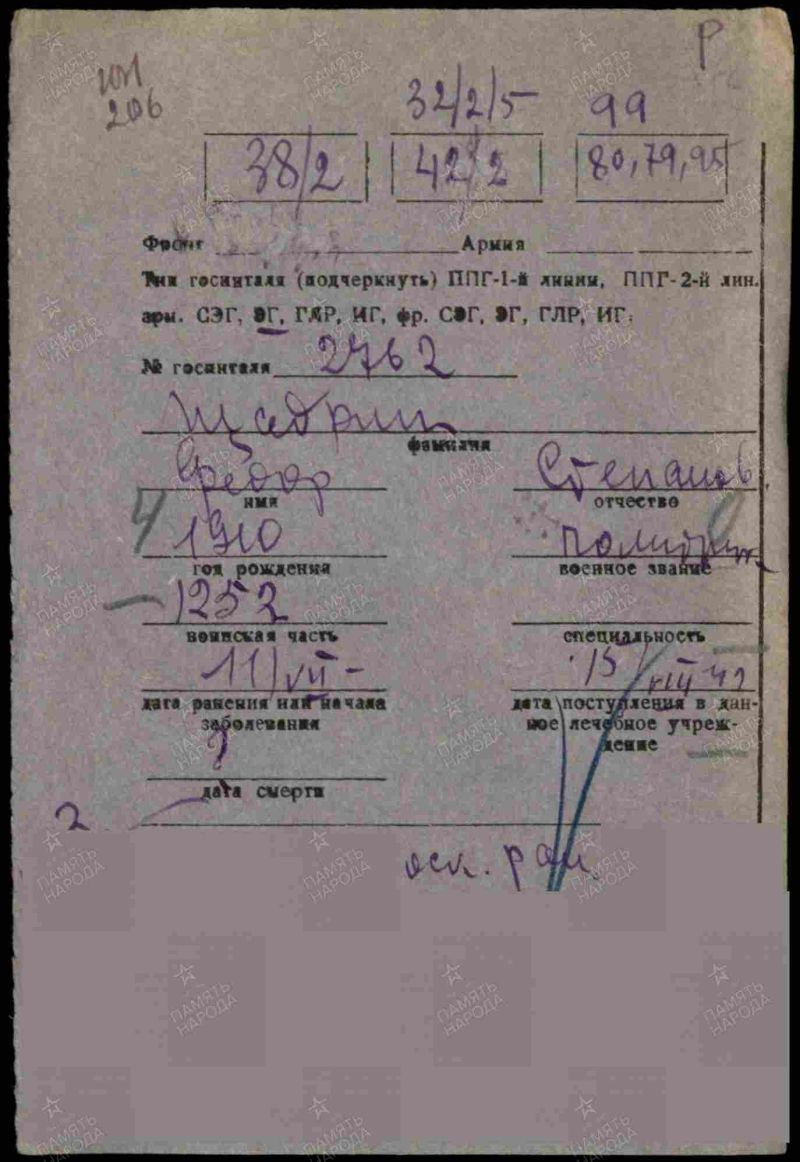 Р
206
32/2/5 99
38/2 42/2 80,79,95
Фронт Армия
Тип госпиталя (подчеркнуть) ППГ-1-й линии, ППГ-2-й лин.
арм. СЭГ, ЭГ, ГЛР, ИГ, фр. СЭГ, ЭГ, ГЛР, ИГ.
№ госпиталя 2762
Щедрин
фамилия
Федор Степанов.
имя отчество
4 1910 политрук
год рождения военное звание
1252
воинская часть специальность
11/VII- 15/VIII 42
дата ранения или начала дата поступления в дан-
заболевания ное лечебное учреж-
дение
дата смерти
2
оск. ран.
ПАМЯТЬ
НАРОДА